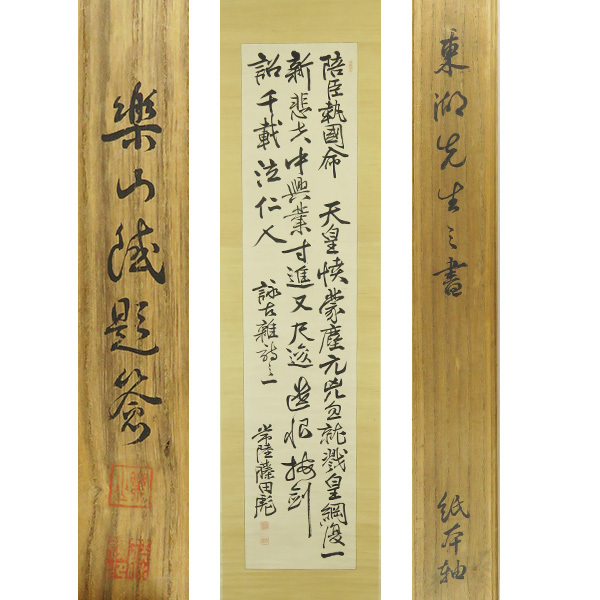 東湖先生之書
紙本軸
陪臣執國命 天皇憤蒙塵元兇忽就戮皇綱復一
新悲哉中興業寸進又尺逡遺恨按劍
詔千載泣仁人
詠古雜詩之一
常陸藤田彪
樂山 題簽